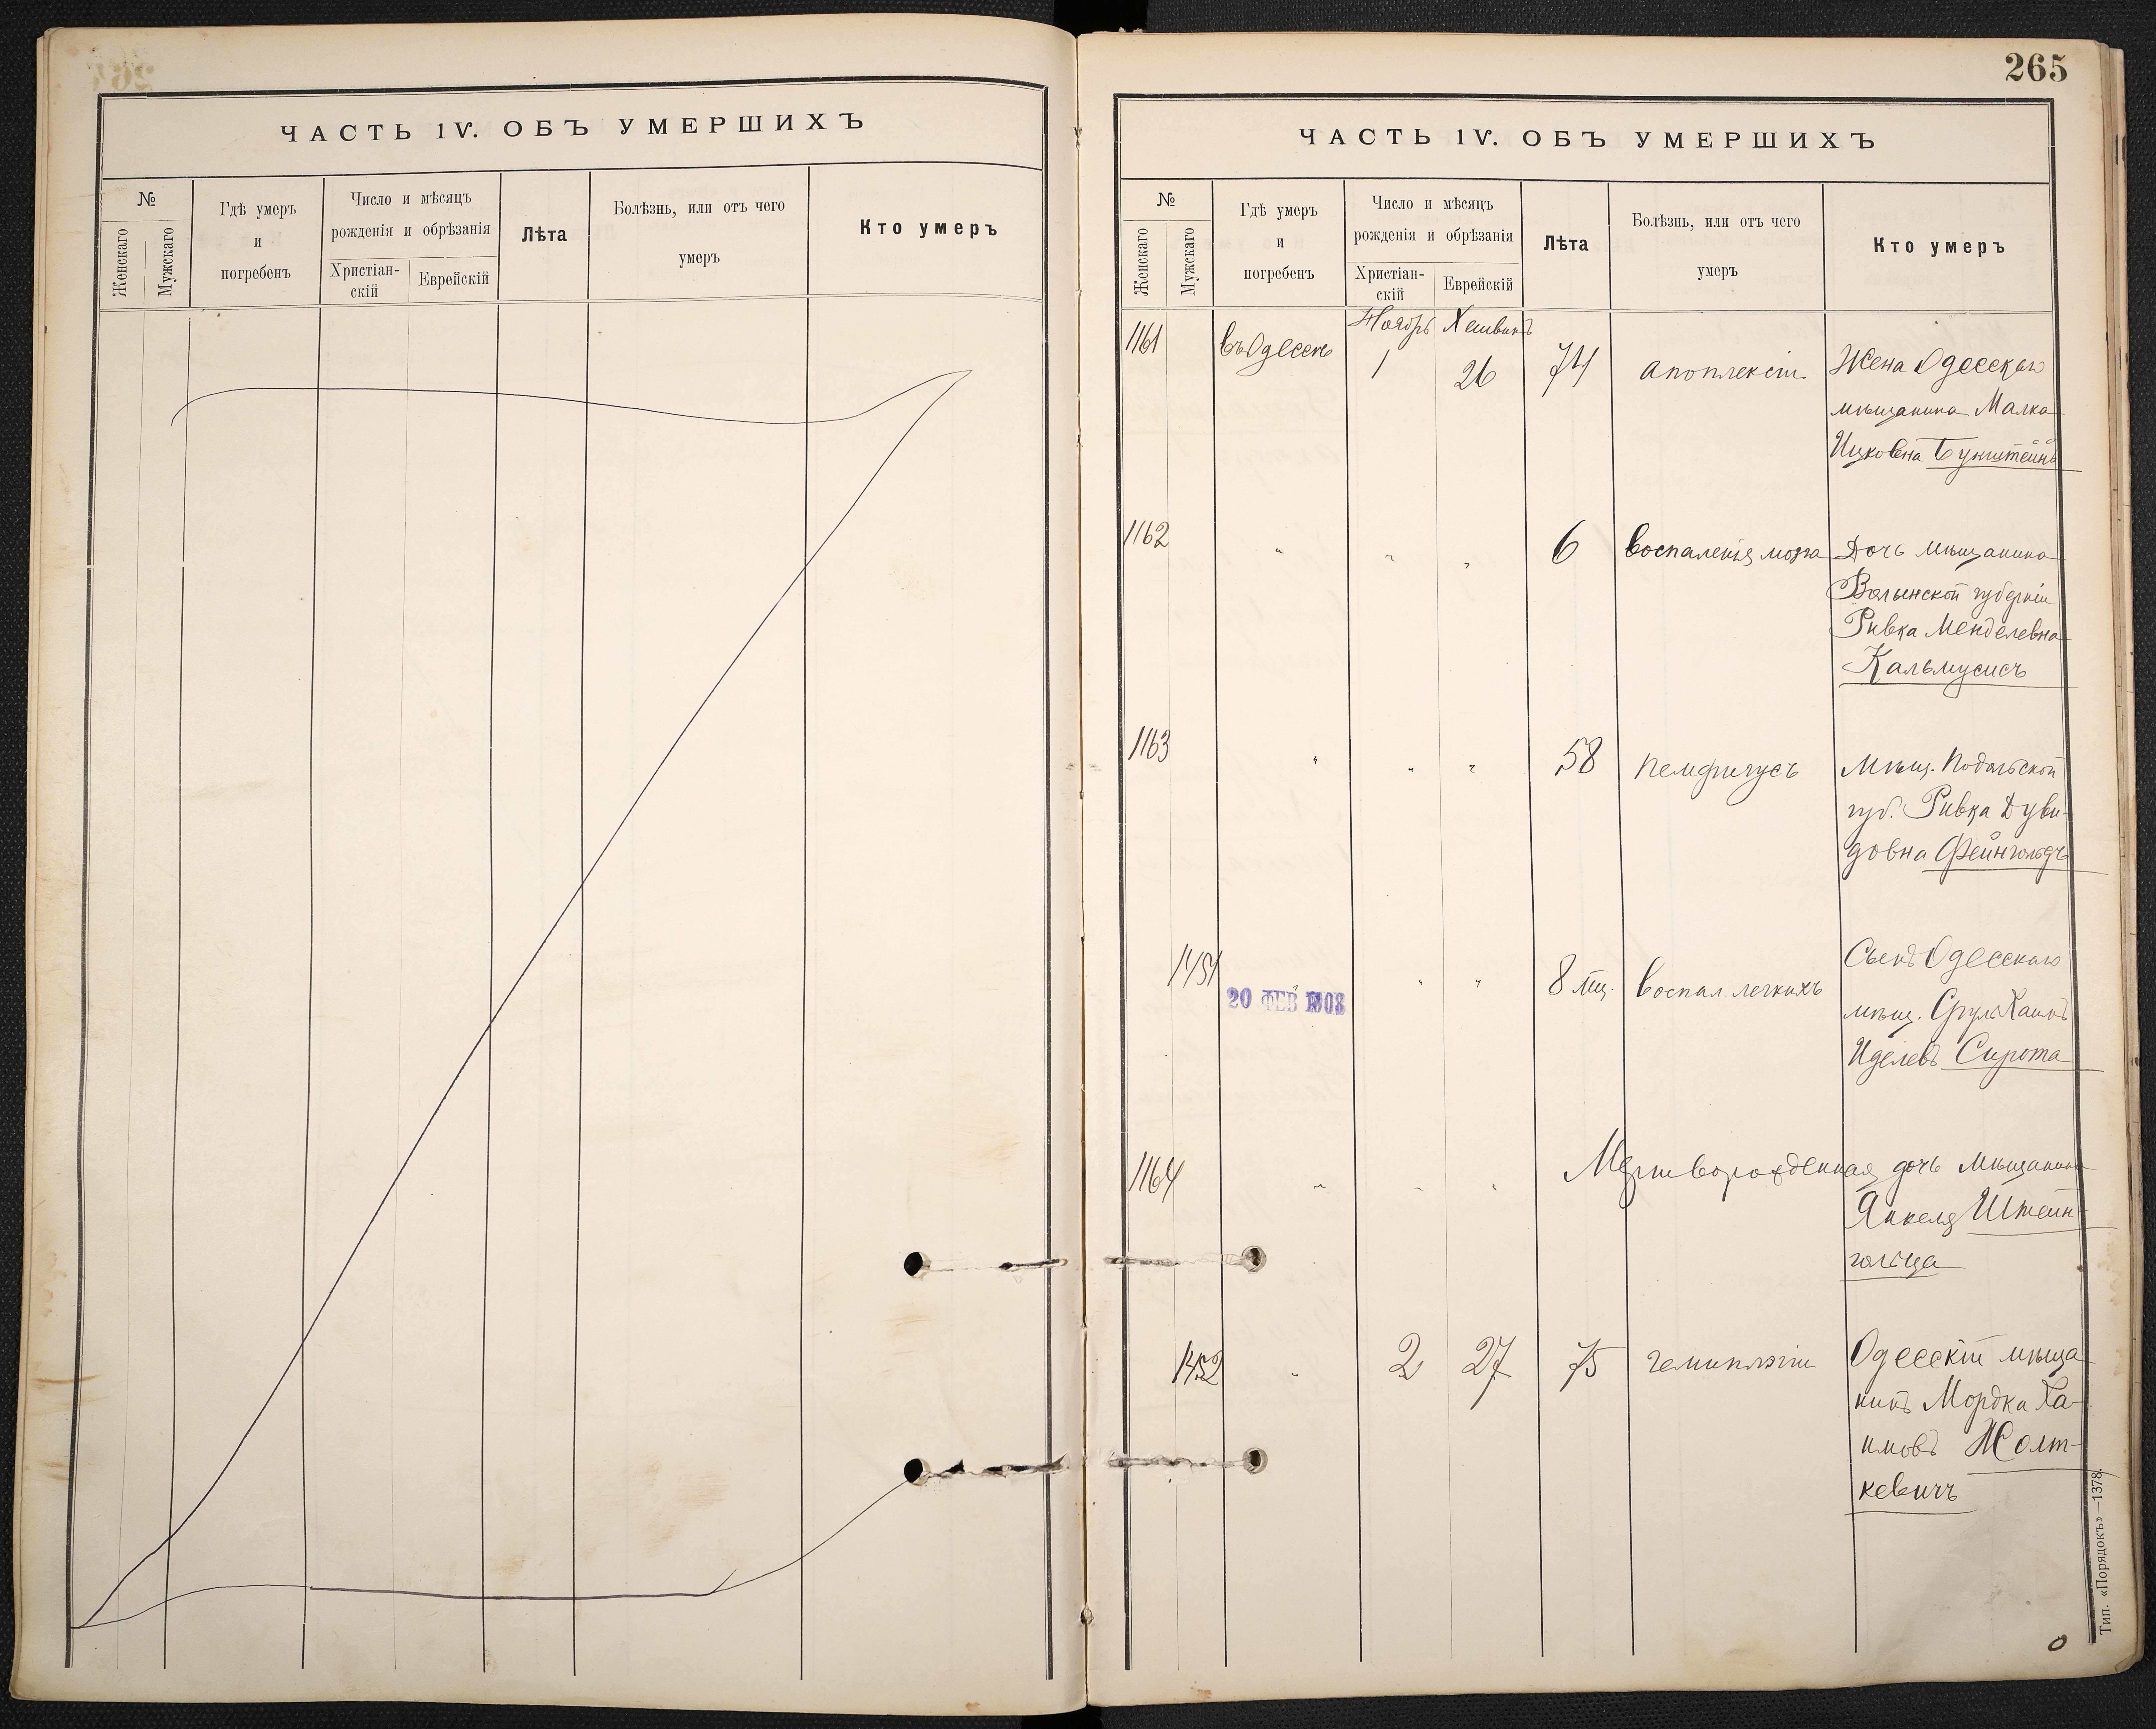 ЧАСТЬ IV. ОБЪ УМЕРШИХЪ
№
Женскаго
Мужскаго
Гдѣ умеръ
и
погребенъ
Число и мѣсяцъ
рожденія и обрѣзанія
Христіан-
скій
Еврейскій
Лѣта
Болѣзнь, или отъ чего
умеръ
Кто умеръ
265
ЧАСТЬ IV. ОБЪ УМЕРШИХЪ
№
Женскаго
Мужскаго
Гдѣ умеръ
и
погребенъ
Число и мѣсяцъ
рожденія и обрѣзанія
Христіан-
скій
Еврейскій
Лѣта
Болѣзнь, или отъ чего
умеръ
Кто умеръ
1161
въ Одессѣ
Ноябрь
1
Хешвинъ
26
74
апоплексіи
Жена Одесскаго
мѣщанина Малка
Ицковна Бунштейнъ
1162
" " "
6
воспаленія мозга
Дочь мѣщанина
Волынской губерніи
Ривка Менделевна
Кальмусисъ
1163
" " "
58
пемфигусъ
Мѣщ. Подольской
губ. Ривка Дуви-
довна Фейнгольдъ
1451
20 ФЕВ 1903
" "
8 мц.
воспал. легкихъ
Сынъ Одесскаго
мѣщ. Сруль Хаимъ
Иделевъ Сирота
1164
" " "
Мертворожденная дочь мѣщанина
Янкеля Штейн-
гольца
1452
"
2
27
75
гемиплэгіи
Одесскій мѣща-
нинъ Мордка Ха-
имовъ Жолт-
кевичъ
Тип. «Порядокъ»—1378.